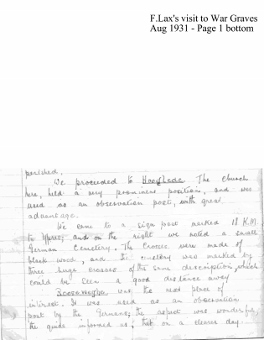 F.Lax's visit to War Graves
Aug 1931 - Page 1 bottom
perished.
We proceeded to Hooglede. The Church
here, held a very prominent position, and was
used as an observation post, with great
advantage.
We came to a sign post marked 18 K.M.
to Ypres, and on the right we noted a small
German Cemetery. The Crosses were made of
black wood, and the cemetery was marked by
three huge crosses of the same description, which
could be seen a good distance away
was the next place of
interest. It was used as an observation
post by the Germans, the aspect was wonderful,
the guide informed us, that on a clear day.